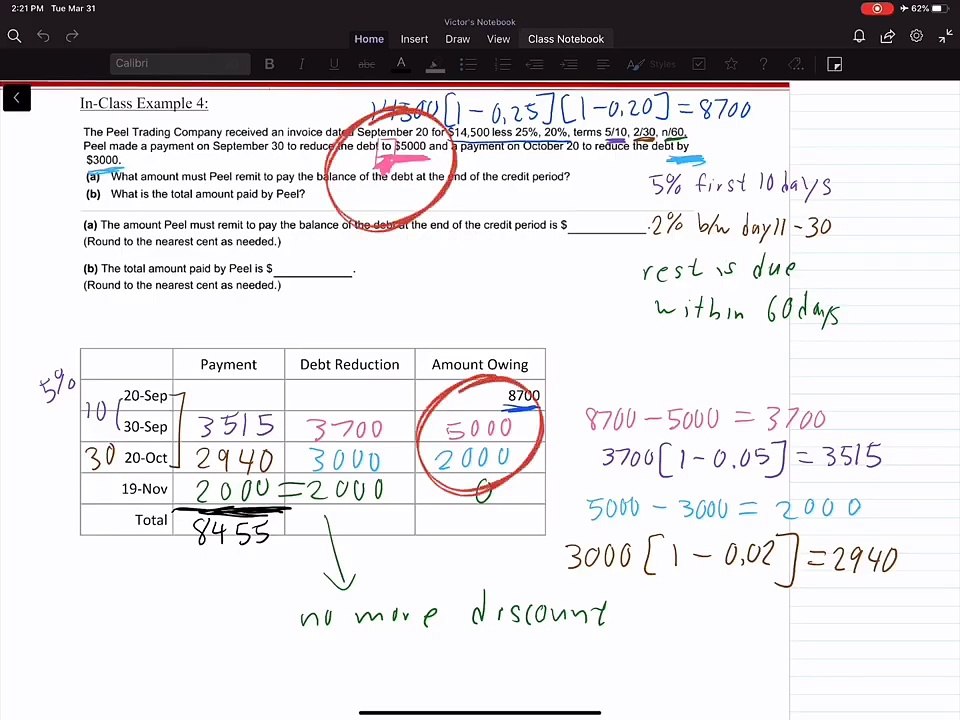 2:21 PM Tue Mar 31
62%
Victor's Notebook
Home Insert Draw View Class Notebook
Calibri B I U abc A Styles
In-Class Example 4:
14500[1-0.25][1-0.20]=8700
The Peel Trading Company received an invoice dated September 20 for $14,500 less 25%, 20%, terms 5/10, 2/30, n/60.
Peel made a payment on September 30 to reduce the debt to $5000 and a payment on October 20 to reduce the debt by
$3000.
(a) What amount must Peel remit to pay the balance of the debt at the end of the credit period?
(b) What is the total amount paid by Peel?
5% first 10 days
(a) The amount Peel must remit to pay the balance of the debt at the end of the credit period is $____________.
(Round to the nearest cent as needed.)
2% b/w day 11-30
(b) The total amount paid by Peel is $____________.
(Round to the nearest cent as needed.)
rest is due
within 60 days
Payment Debt Reduction Amount Owing
5% 20-Sep 8700
10 30-Sep 3515 3700 5000
30 20-Oct 2940 3000 2000
19-Nov 2000 = 2000 0
Total 8455
8700 - 5000 = 3700
3700[1-0.05] = 3515
5000 - 3000 = 2000
3000[1-0.02] = 2940
no more discount